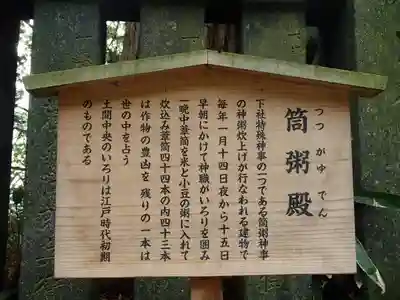 筒粥殿
つつがゆでん
下社特殊神事の一つである筒粥神事
の神炊上げが行なわれる建物で
毎年一月十四日夜から十五日
早朝にかけて神職がいろりを囲み
一晩中葦筒を米と小豆の粥に入れて
炊込み葦筒四十四本の内四十三本
は作物の豊凶を 残りの一本は
世の中を占う
土間中央のいろりは江戸時代初期
のものである